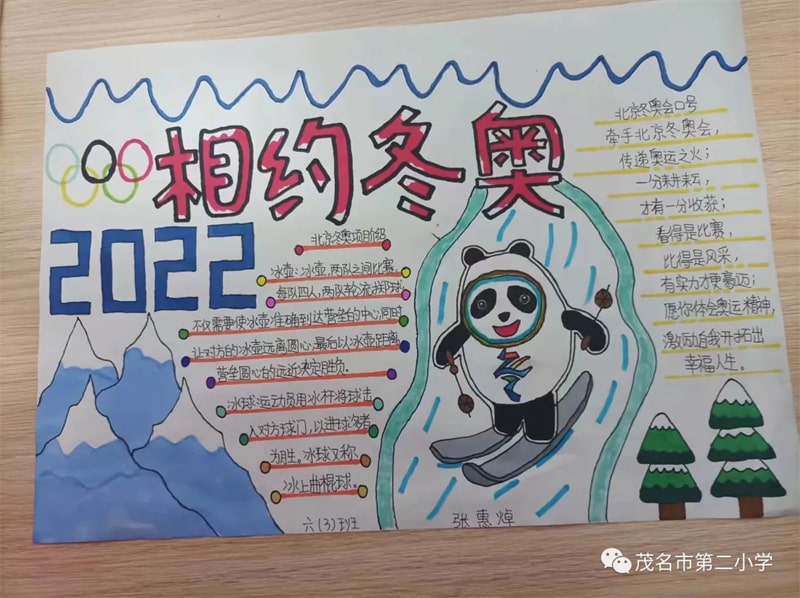 相约冬奥
2022
北京冬奥项目介绍
冰壶:冰壶,两队之间比赛,
每队四人,两队轮流掷球
不仅需要使冰壶准确到达营垒的中心,同时
让对方的冰壶远离圆心,最后以冰壶距离
营垒圆心的远近决定胜负。
冰球:运动员用冰杆将球击
入对方球门,以进球多者
为胜。冰球又称
冰上曲棍球。
六(3)班
张惠焯
北京冬奥会口号
牵手北京冬奥会,
传递奥运之火;
一分耕耘,
才有一分收获;
看得是比赛,
比得是风采,
有实力才更豪迈;
愿你体会奥运精神,
激励后我开拓出
幸福人生。
茂名市第二小学